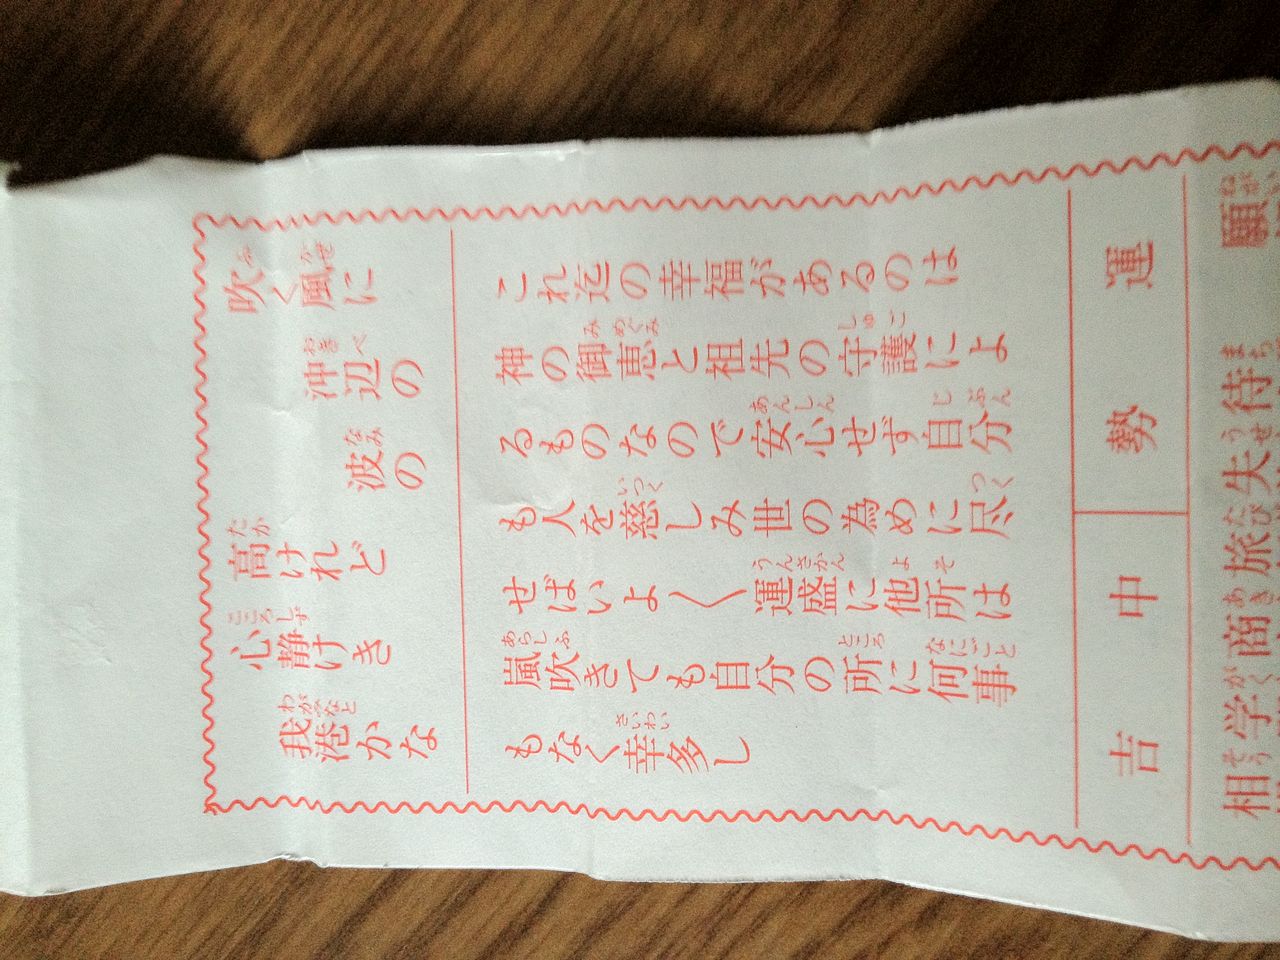 吹く風に
沖辺の
波の
高けれど
心静けき
我港かな
これ迄の幸福があるのは
神の御恵と祖先の守護によ
るものなので安心せず自分
も人を慈しみ世の為めに尽
せばいよ〱運盛に他所は
嵐吹きても自分の所に何事
もなく幸多し
運勢
中吉
願
待
失
旅
商
学
相